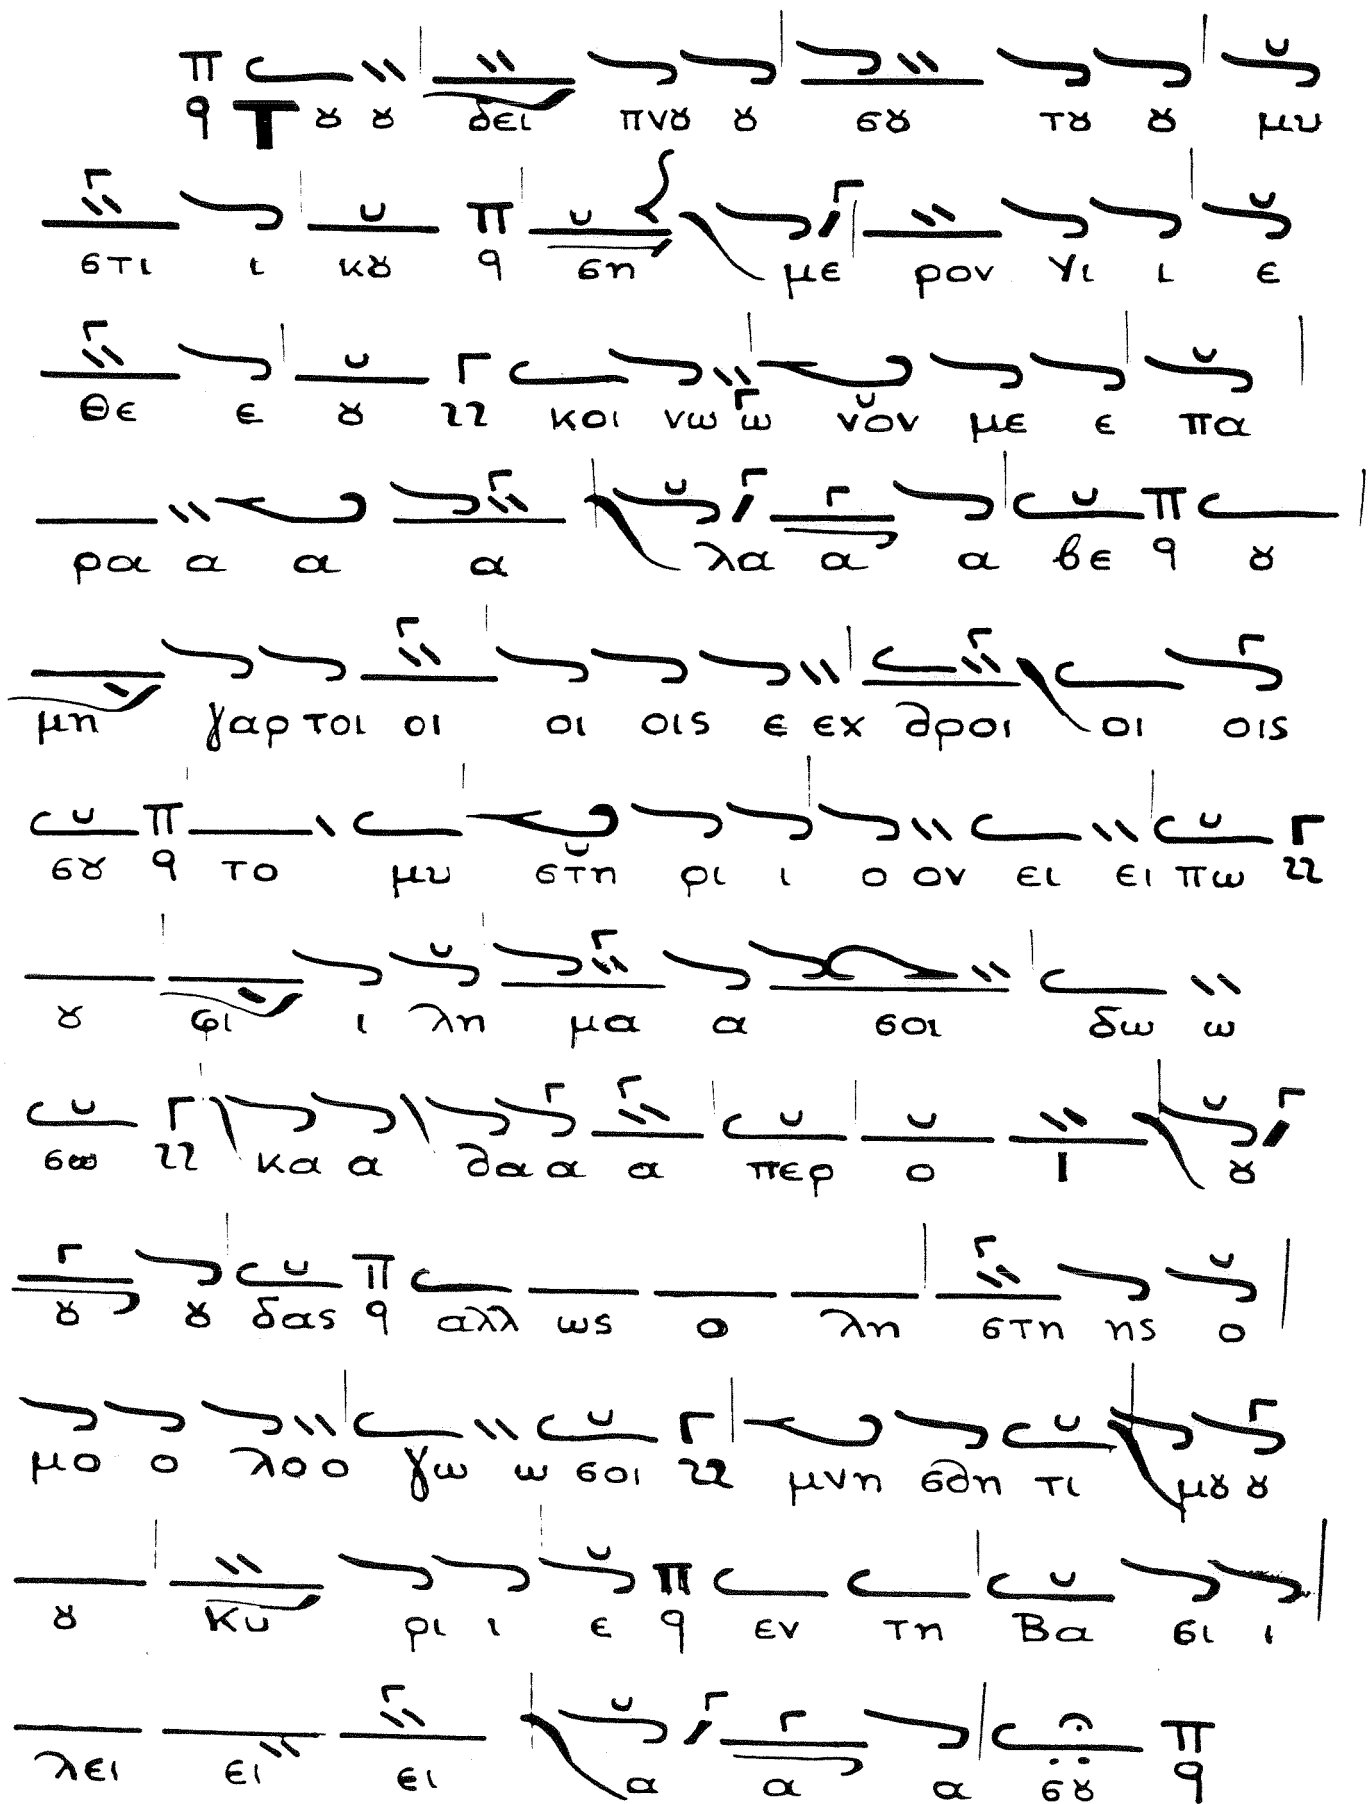 π q Τ ȣ ȣ δει πνȣ ȣ σȣ τȣ ȣ μυ
στι ι κȣ π q ση με ρον γι ι ε
θε ε ȣ κοι νω ω νον με ε πα
ρα α α α λα α α βε π q ȣ
μη γαρ τοι οι οι οις ε εχ θροι οι οις
σȣ π q το μυ στη ρι ι ο ον ει ει πω
ȣ φι ι λη μα α σοι δω ω
σω κα α θα α α περ ο Ι ȣ
ȣ ȣ δας π q αλλ ως ο λη στη ης ο
μο ο λο ο γω ω σοι μνη σθη τι μȣ ȣ
ȣ Κυ ρι ι ε π q εν τη Βα σι ι
λει ει ει α α α σȣ π q